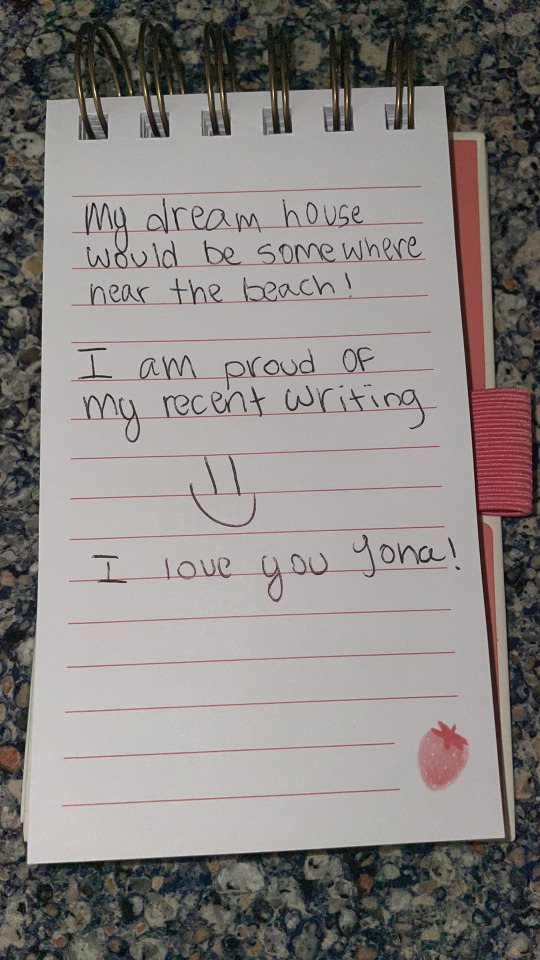 My dream house
would be somewhere
near the beach!
I am proud of
my recent writing
I love you Yona!